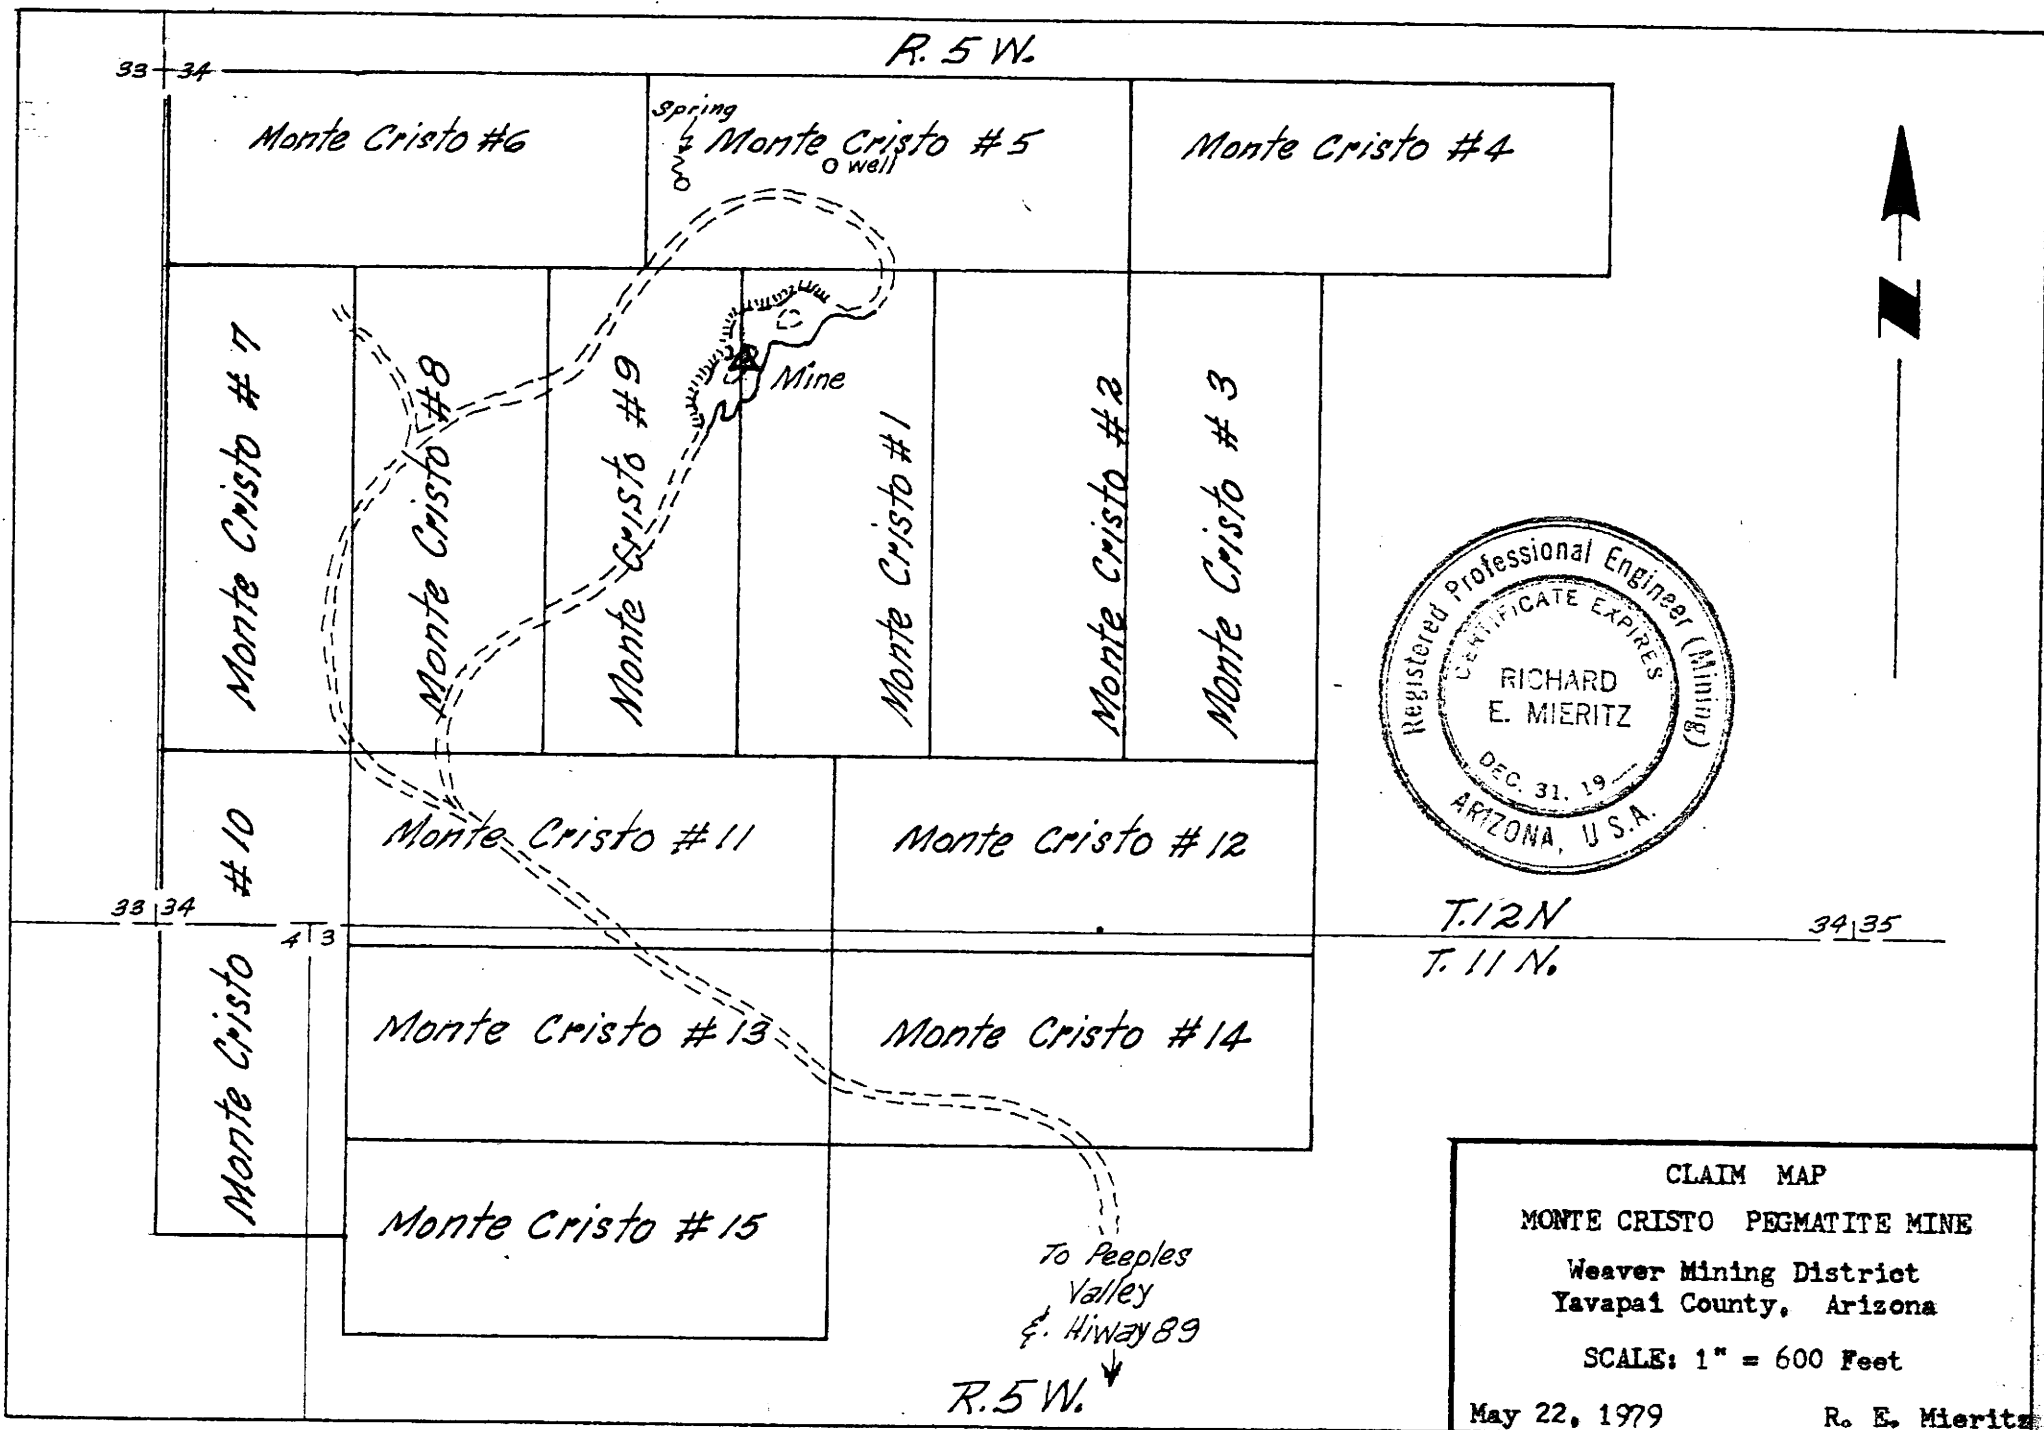 R. 5 W.
33 34
Monte Cristo #6
Spring
Monte Cristo #5
well
Monte Cristo #4
N
Monte Cristo #7
Monte Cristo #8
Monte Cristo #9
Mine
Monte Cristo #1
Monte Cristo #2
Monte Cristo #3
Registered Professional Engineer (Mining)
CERTIFICATE EXPIRES
RICHARD
E. MIERITZ
DEC. 31, 19
ARIZONA, U.S.A.
Monte Cristo #10
Monte Cristo #11
Monte Cristo #12
33 34
4 3
T.12N
T. 11 N.
34 35
Monte Cristo #13
Monte Cristo #14
Monte Cristo #15
To Peeples
Valley
&. Hiway 89
R.5 W.
CLAIM MAP
MONTE CRISTO PEGMATITE MINE
Weaver Mining District
Yavapai County, Arizona
SCALE: 1" = 600 Feet
May 22, 1979 R. E. Mieritz